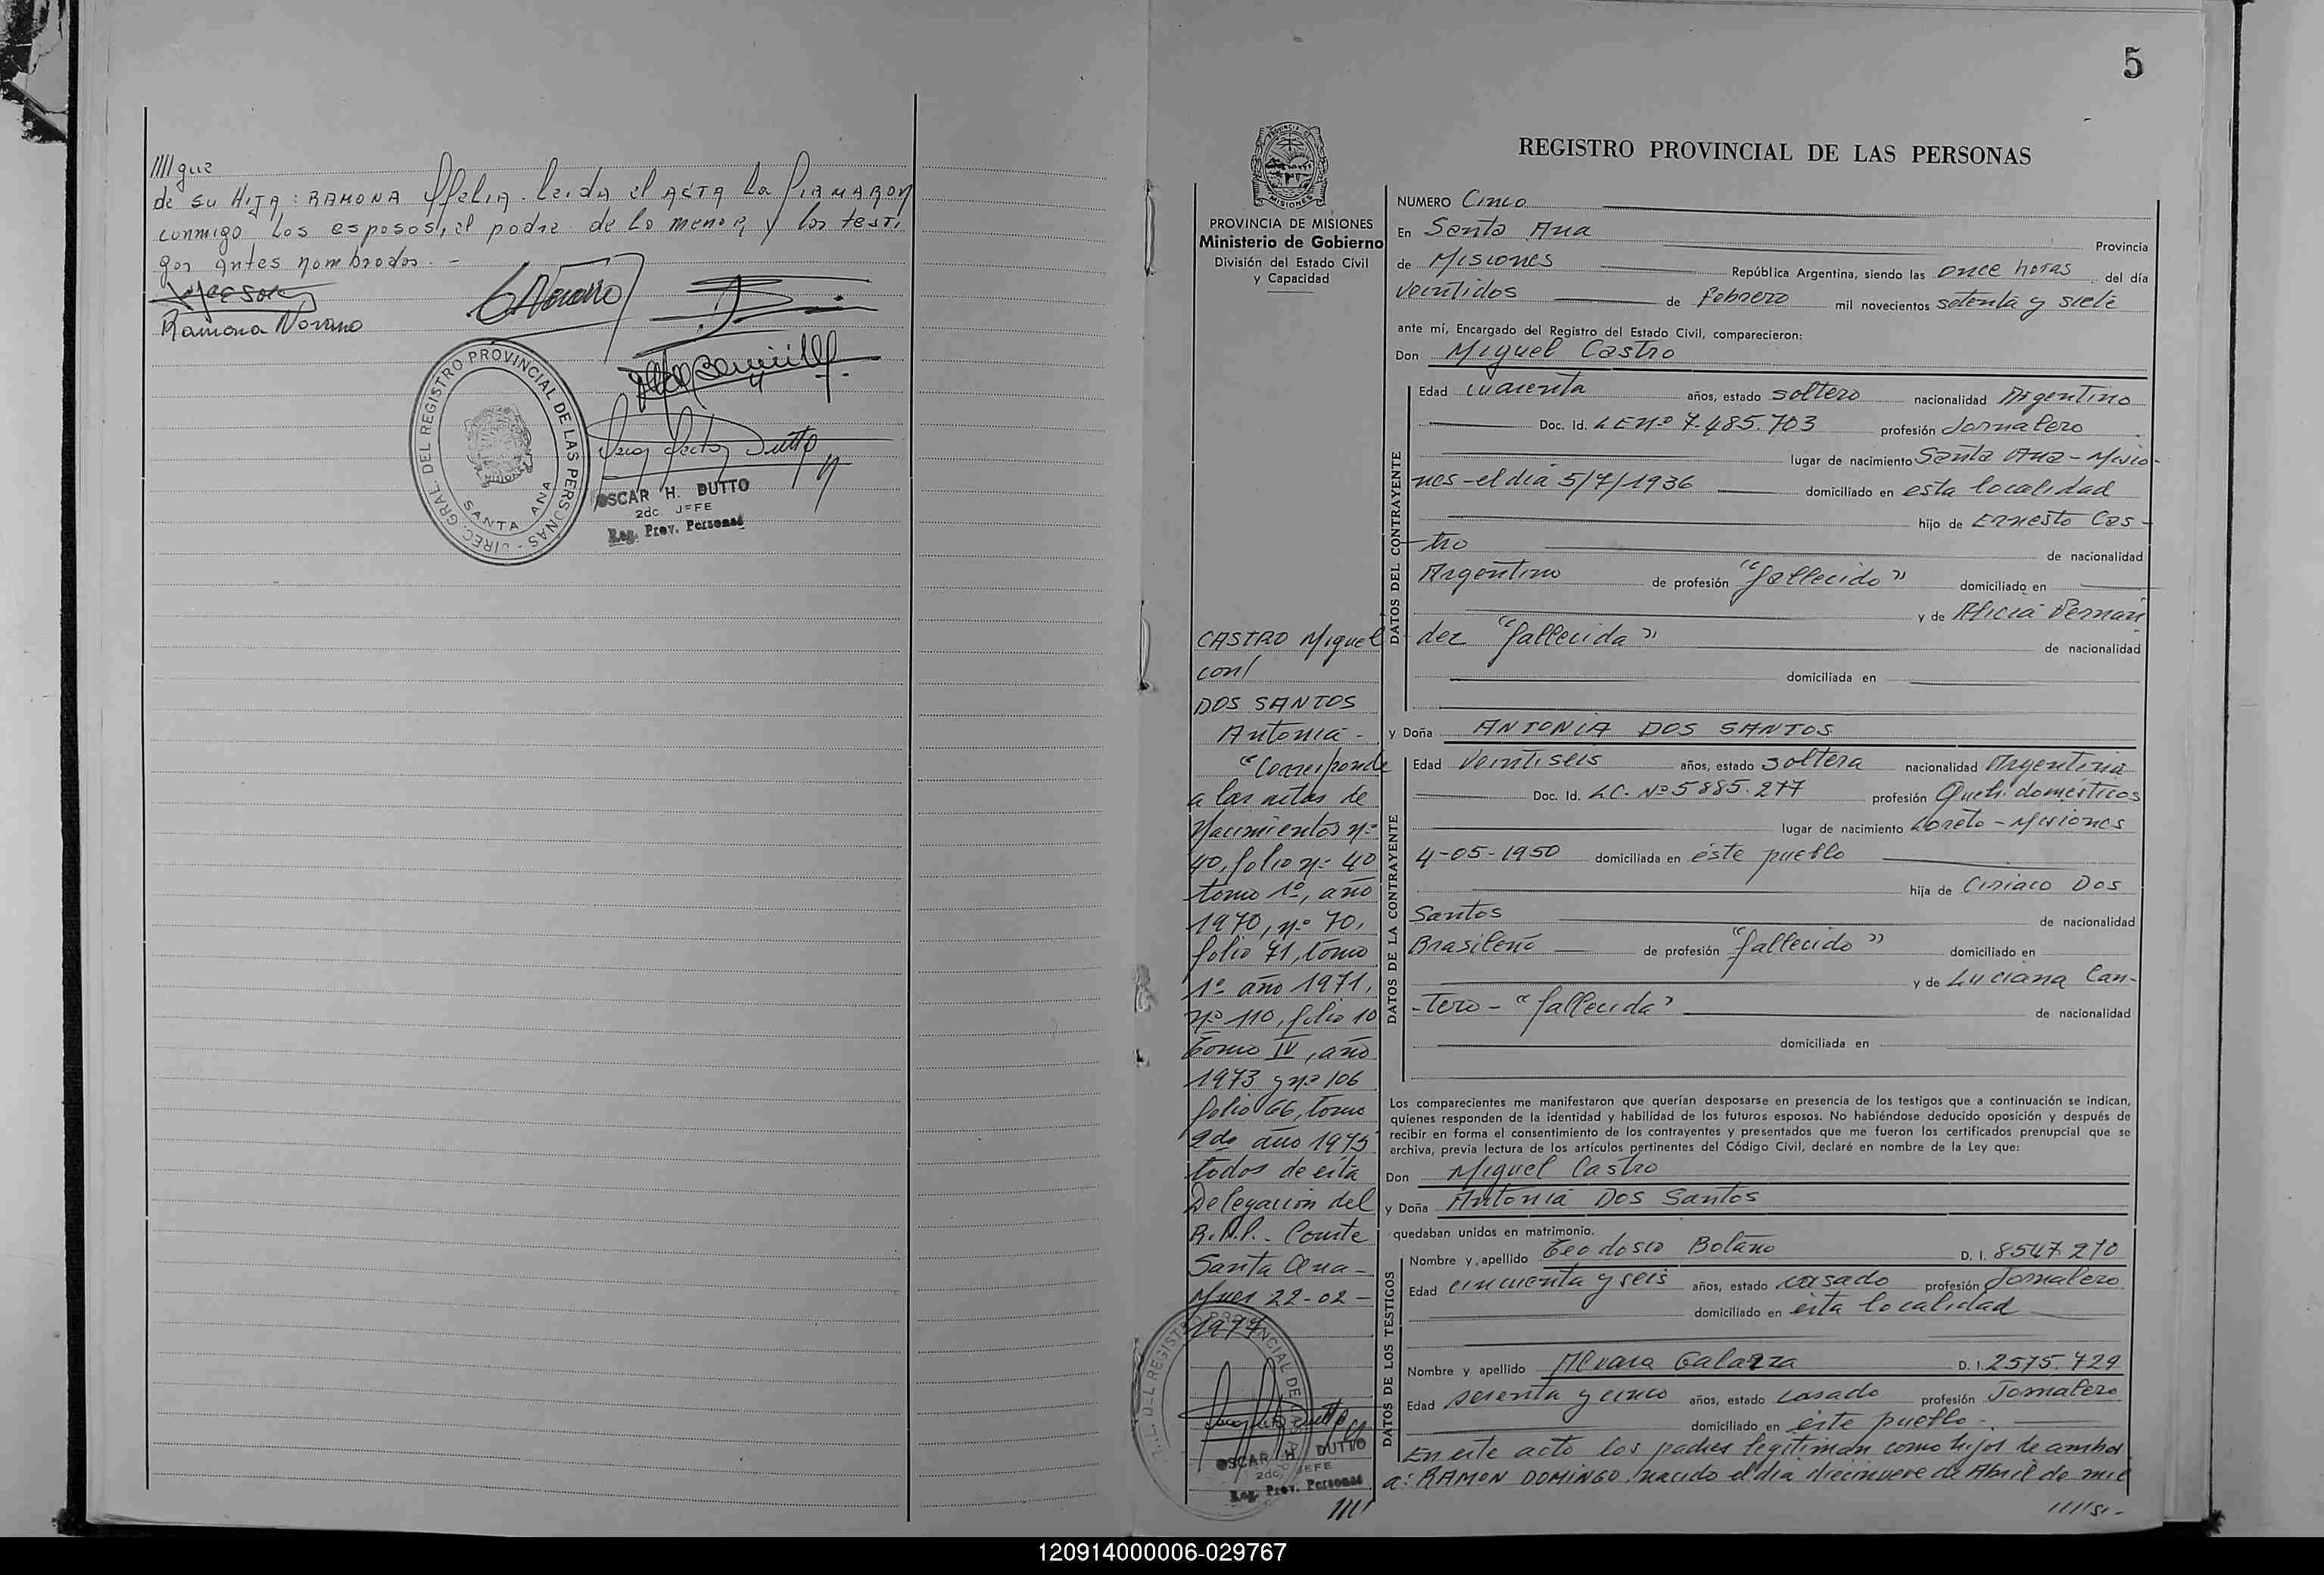 ////gue
de su HIJA: RAMONA Ofelia. Leida el ACTA La FIRMARON
conmigo los esposos, el padre de la menor, y los testi,
gos antes nombrados. -
Ramona Novano
DIREC. GRAL. DEL REGISTRO PROVINCIAL DE LAS PERSONAS -
SANTA ANA
OSCAR H. DUTTO
2do. JEFE
Reg. Prov. Personas
5
PROVINCIA DE MISIONES
Ministerio de Gobierno
División del Estado Civil
y Capacidad
CASTRO Miguel
con/
DOS SANTOS
Antonia -
"Corresponde
a las actas de
Nacimientos nº
40, folio nº 40
tomo 1º, año
1970, nº 70,
folio 71, tomo
1º año 1971,
nº 110, folio 10
tomo IV, año
1973 y nº 106
folio 66, tomo
2do año 1975
todos de esta
Delegación del
R.P.P. Conste
Santa Ana -
Mnes 22-02-
1977
OSCAR H. DUTTO
2do. JEFE
Reg. Prov. Personas
////
REGISTRO PROVINCIAL DE LAS PERSONAS
NUMERO Cinco
En Santa Ana Provincia
de Misiones República Argentina, siendo las once horas del día
veintidos de febrero mil novecientos setenta y siete
ante mí, Encargado del Registro del Estado Civil, comparecieron:
Don Miguel Castro
DATOS DEL CONTRAYENTE
Edad cuarenta años, estado soltero nacionalidad Argentino
Doc. Id. LE Nº 7.485.703 profesión Jornalero
lugar de nacimiento Santa Ana - Misio-
nes - el día 5/7/1936 domiciliado en esta localidad
hijo de Ernesto Cas-
tro de nacionalidad
Argentino de profesión "fallecido" domiciliado en
y de Alicia Fernan
dez "fallecida" de nacionalidad
domiciliada en
y Doña ANTONIA DOS SANTOS
DATOS DE LA CONTRAYENTE
Edad veintiseis años, estado soltera nacionalidad Argentina
Doc. Id. LC. Nº 5885.277 profesión Queh. domesticos
lugar de nacimiento Loreto - Misiones
4-05-1950 domiciliada en éste pueblo
hija de Ciriaco Dos
Santos de nacionalidad
Brasileño de profesión "fallecido" domiciliado en
y de Luciana Can-
tero - "fallecida" de nacionalidad
domiciliada en
Los comparecientes me manifestaron que querían desposarse en presencia de los testigos que a continuación se indican,
quienes responden de la identidad y habilidad de los futuros esposos. No habiéndose deducido oposición y después de
recibir en forma el consentimiento de los contrayentes y presentados que me fueron los certificados prenupcial que se
archiva, previa lectura de los artículos pertinentes del Código Civil, declaré en nombre de la Ley que:
Don Miguel Castro
y Doña Antonia Dos Santos
quedaban unidos en matrimonio.
DATOS DE LOS TESTIGOS
Nombre y apellido Teodosio Bolaño D. I. 8547.270
Edad cincuenta y seis años, estado casado profesión Jornalero
domiciliado en ésta localidad
Nombre y apellido Alvara Galarza D. I. 2575.729
Edad setenta y cinco años, estado casado profesión Jornalero
domiciliado en éste pueblo -
En este acto los padres legitiman como hijos de ambos
a: RAMON DOMINGO, nacido el día diecinueve de Abril de mil
120914000006-029767